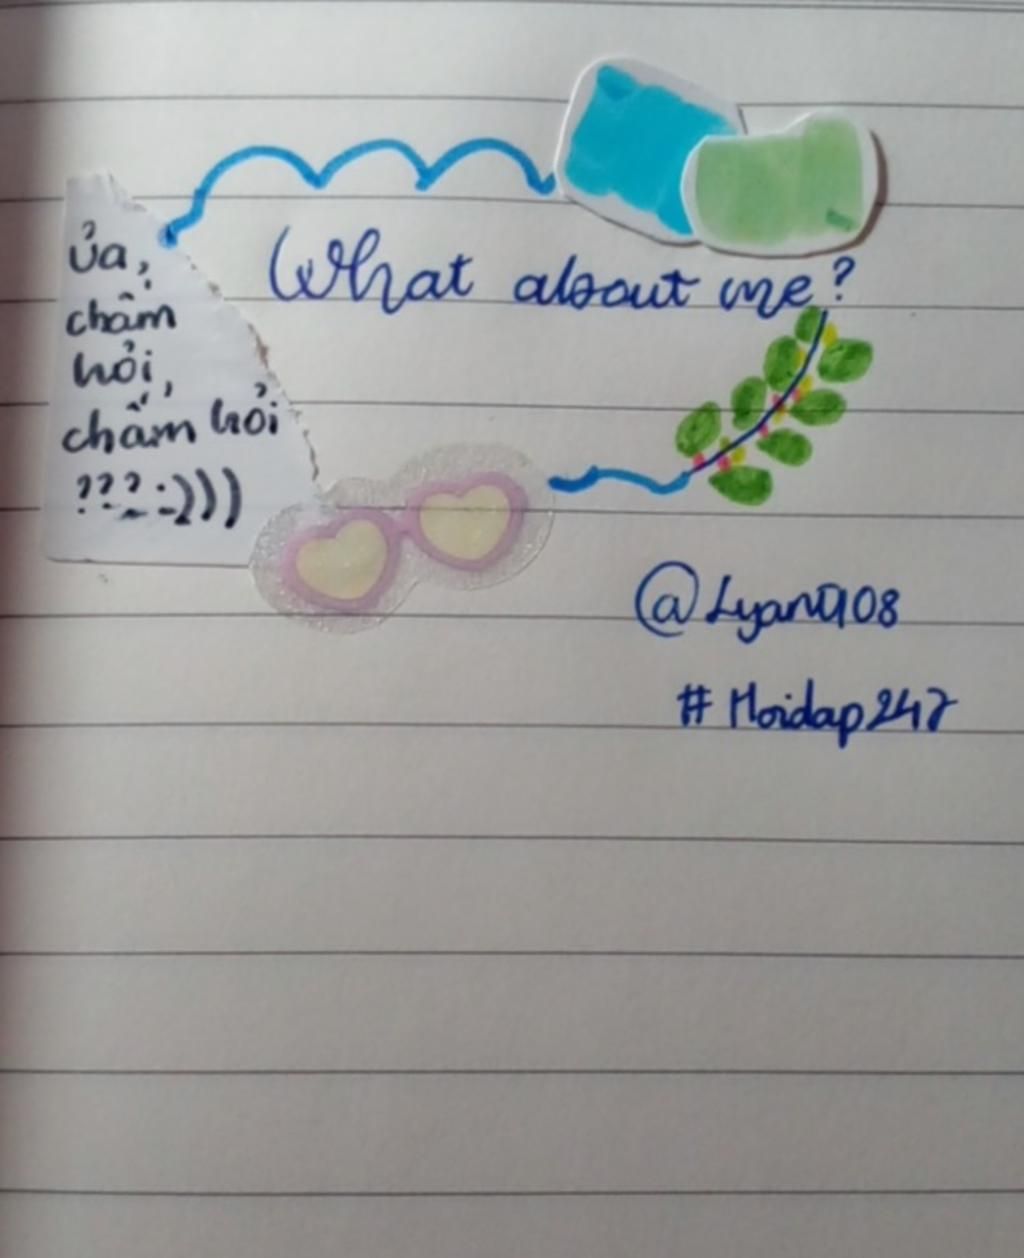 ủa,
chấm
hỏi,
chấm hỏi
???:)))
What about me?
@Lyan0108
#Hoidap247